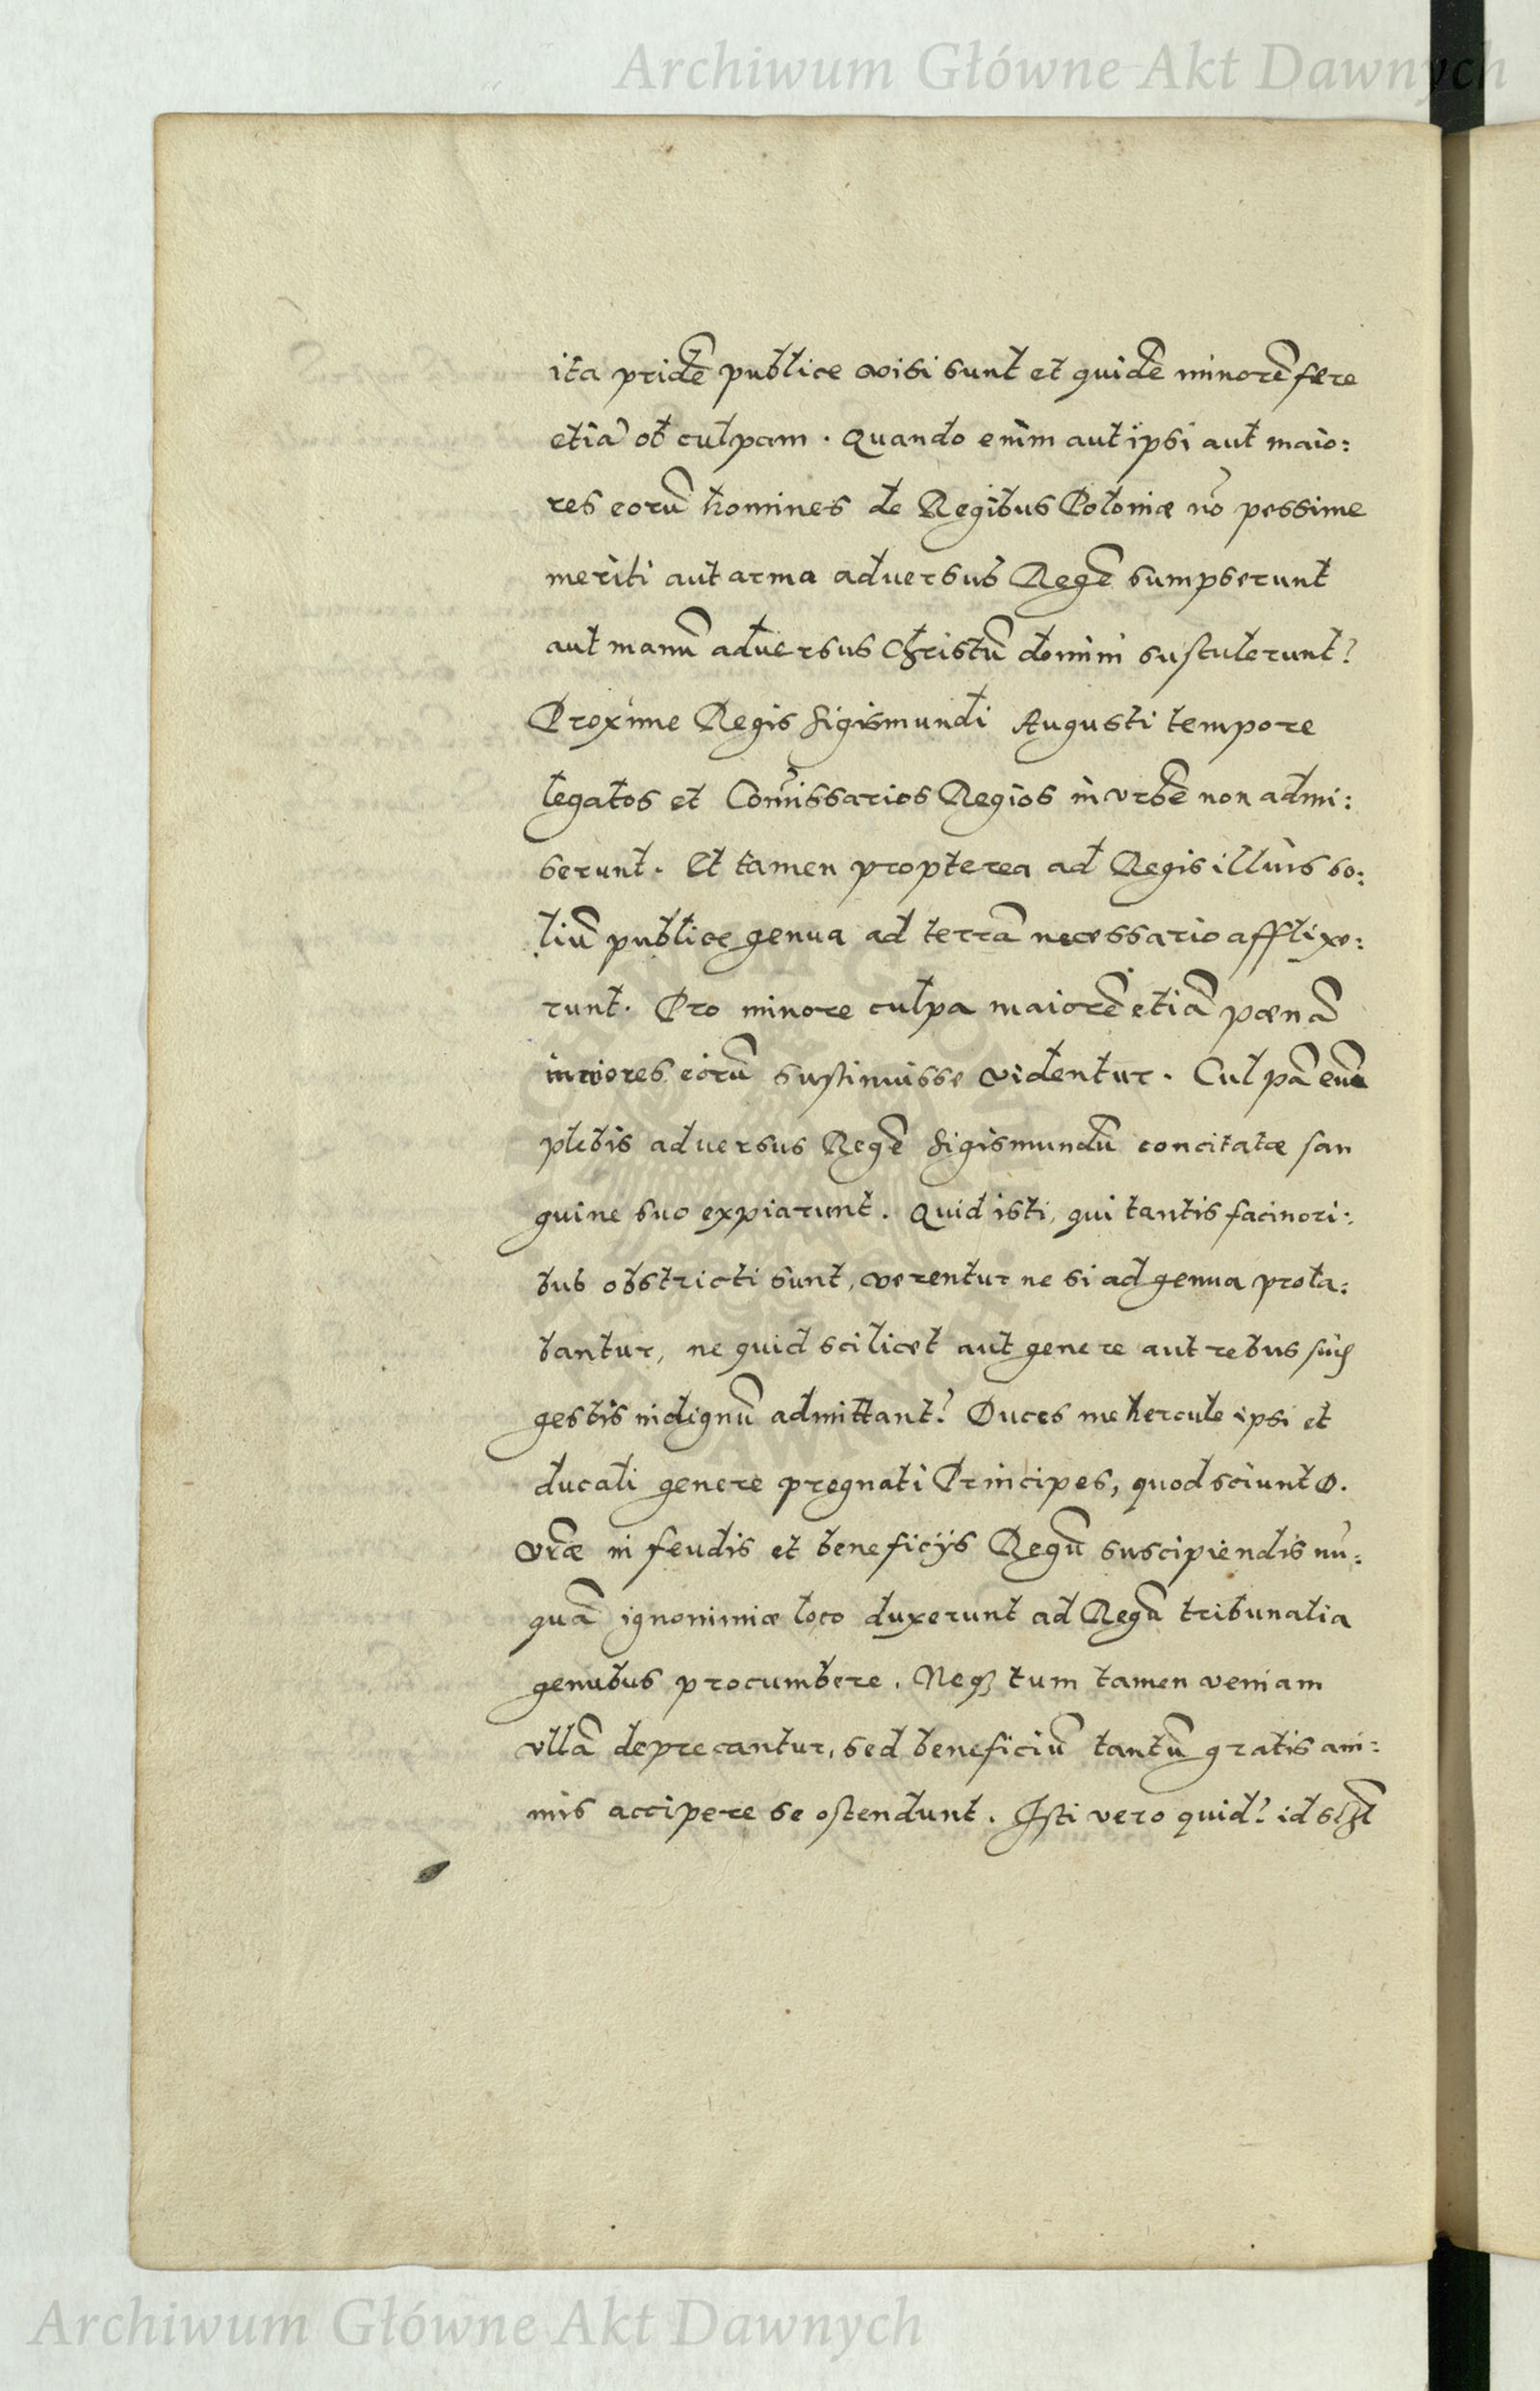 Archiwum Główne Akt Dawnych
ita pridẽ publice visi sunt et quidẽ minorẽ fere
etiã ob culpam. Quando enim aut ipsi aut maio:
res eorũ homines de Regibus Poloniæ nõ pessime
meriti aut arma adversus Regẽ sumpserunt
aut manũ adversus Christũ domini sustulerunt?
Proxime Regis Sigismundi Augusti tempore
legatos et Com̃issarios Regios in vrbẽ non admi:
serunt. Et tamen propterea ad Regis illius so:
liũ publice genua ad terrã necessario afflixe:
runt. Pro minore culpa maiorẽ etiã pœnã
eorũ sustinuisse videntur. Culpã
plebis adversus Regẽ Sigismundũ concitatæ san
guine suo expiarunt. Quid isti, qui tantis facinori:
bus obstricti sunt, verentur ne si ad genua prola:
bantur, ne quid scilicet aut genere aut rebus suis
gestis indignũ admittant? Duces mehercule ipsi et
ducali genere pregnati Principes, quod sciunt D.
Vr̃æ in feudis et beneficijs Regũ suscipiendis nũ:
quã ignominiæ loco duxerunt ad Regũ tribunalia
genubus procumbere. Neqꝫ tum tamen veniam
vllã deprecantur, sed beneficiũ tantũ gratis ani:
mis accipere se ostendunt. Isti vero quid? id
Archiwum Główne Akt Dawnych